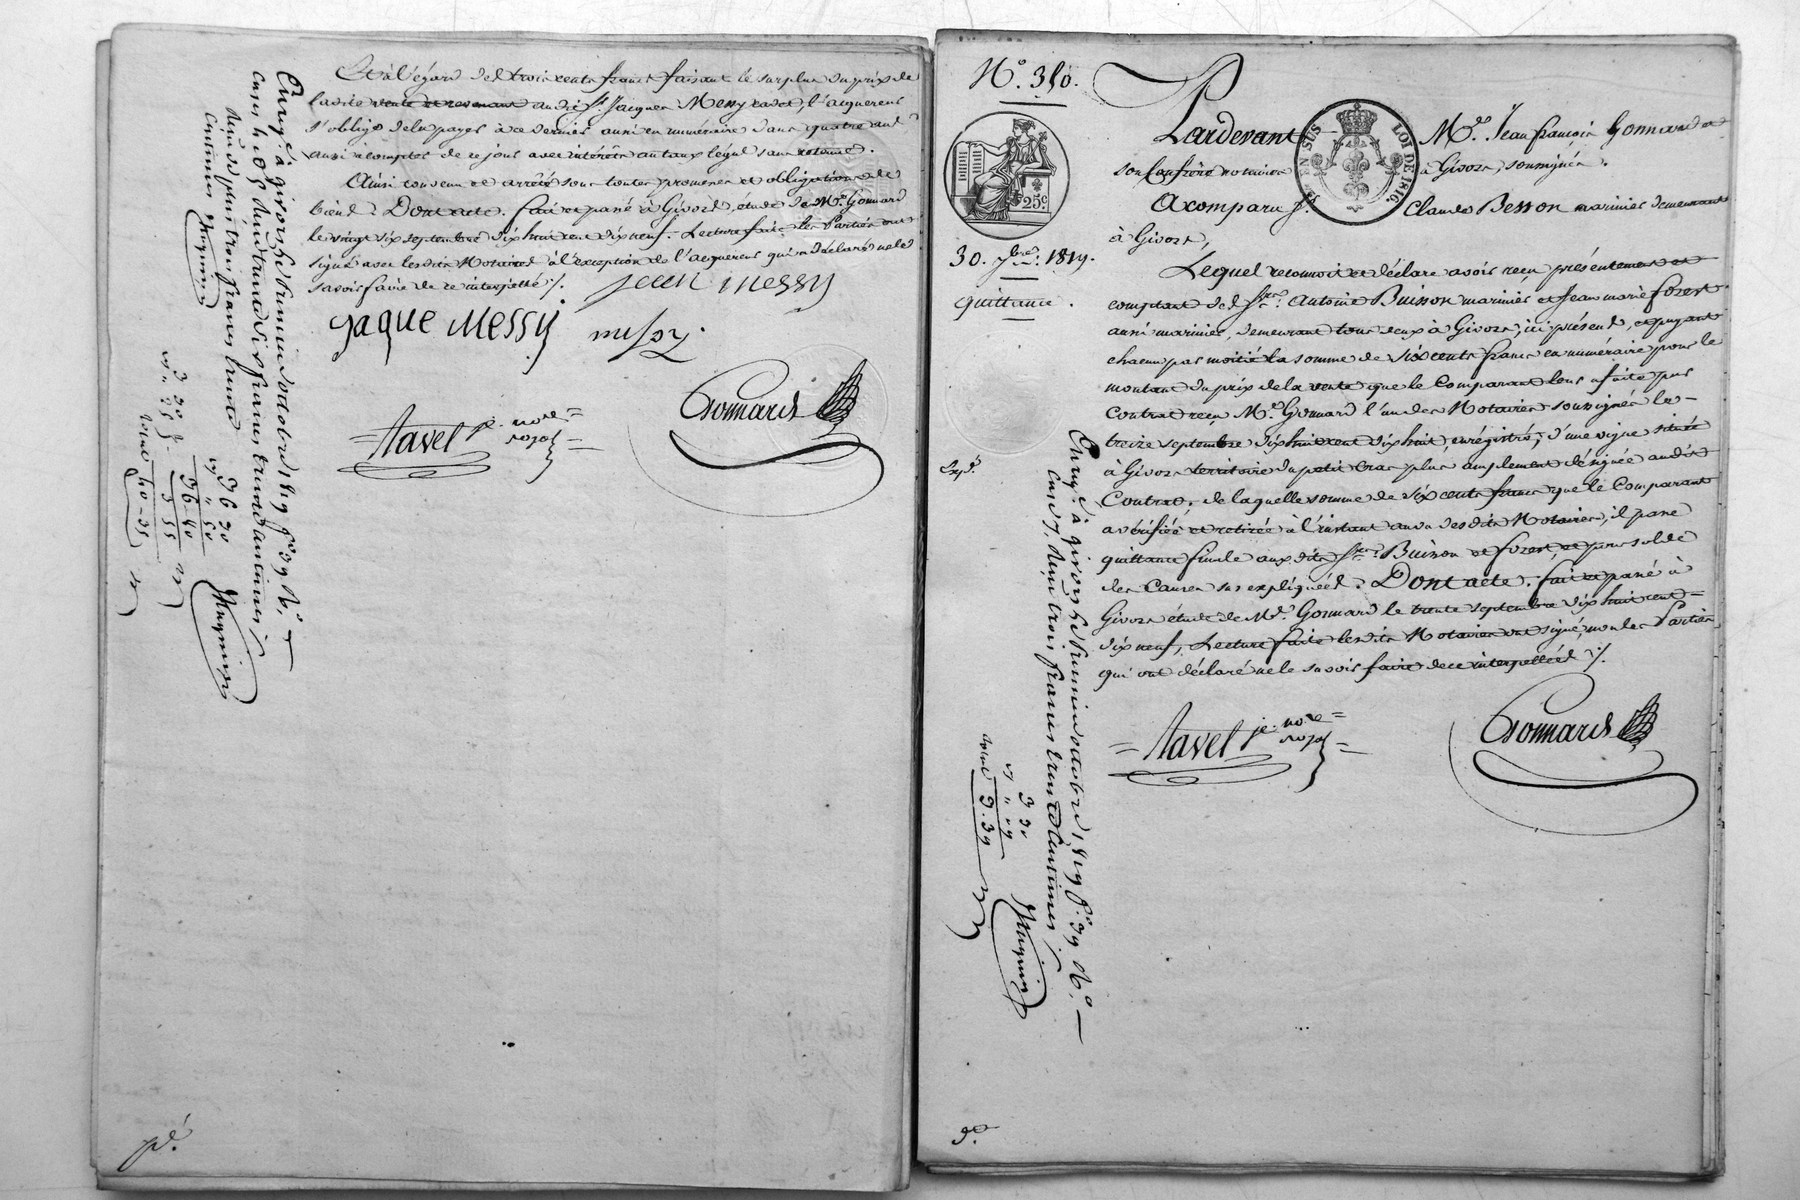 Et à l'égard des trois cents francs faisant le surplus du prix de
ladite vente et revenant audit Sr. Jacques Messy cadet, l'acquereur
s'oblige de les payer à ce dernier aussi en numéraire dans quatre ans
aussi à compter de ce jour avec intérêts au taux légal sans retenue.
Ainsi convenu et arrêté sous toutes promesses et obligations de
biens. Dont acte. fait et passé à Givors, étude de Me. Gonnard
le vingt six septembre dix huit cent dix neuf. Lecture faite les Parties ont
signé avec lesdits Notaires à l'exception de l'acquereur qui a déclaré ne le
savoir faire de ce interpellé ./.
jean messy
jaque Messy messy
= Tavel je. nore =
royal =
Gonnard
Enregé. à givors le premier octobre 1819 fo. 39 Ro.
cases 4 et 5 Reçu trente six francs trente centimes ./.
Reçu de plus trois francs trente
centimes
36 30
3 63
pé.
No. 350.
25c
30. 7bre. 1819.
Quittance.
Expé.
Pardevant Me. Jean françois Gonnard et
EN SUS LOI DE 1816
son Confrère notaires à Givors, soussignés.
A comparu Sr. Claude Besson marinier demeurant
à Givors,
Lequel reconnoit et déclare avoir reçu présentement et
comptant des Srs. Antoine Buisson marinier et Jean marie forest
aussi marinier, demeurant tous deux à Givors, ici présens, et payant
chacun par moitié la somme de six cents francs en numéraire pour le
montant du prix de la vente que le Comparant leur a faite par
Contrat reçu Me. Gonnard l'un des Notaires soussignés le
treize septembre dix huit cent dix huit, enrégistré, d'une vigne située
à Givors territoire du petit Cras plus amplement désignée audit
Contrat, de laquelle somme de six cents francs que le Comparant
a vérifiée et retirée à l'instant au vu desdits Notaires, il passe
quittance finale auxdits Srs. Buisson et forest, et pour solde
des Causes sus expliquées. Dont acte. fait et passé à
Givors étude de Me. Gonnard le trente septembre dix huit cent
dix neuf, Lecture faite lesdits Notaires ont signé, non les Parties
qui ont déclaré ne le savoir faire de ce interpellées ./.
= Tavel je. nore =
royal =
Gonnard
Enregé. à givors le premier octobre 1819 fo. 39 Ro.
case 7, Reçu trois francs trente centimes ./.
3 30